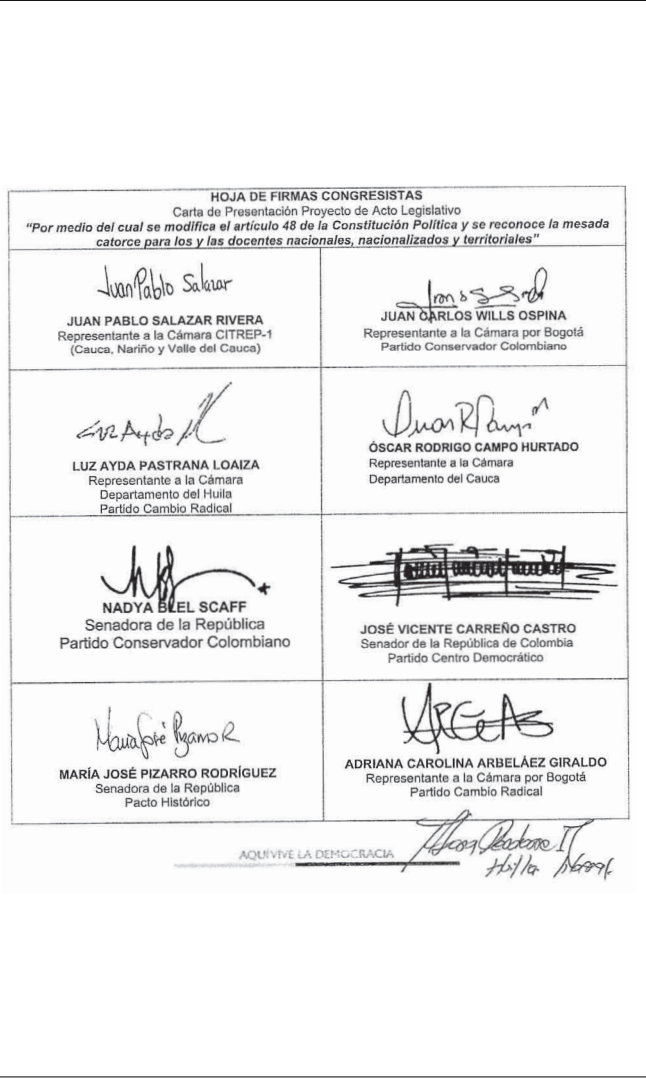 HOJA DE FIRMAS CONGRESISTAS
Carta de Presentación Proyecto de Acto Legislativo
"Por medio del cual se modifica el artículo 48 de la Constitución Política y se reconoce la mesada
catorce para los y las docentes nacionales, nacionalizados y territoriales"
Juan Pablo Salazar
JUAN PABLO SALAZAR RIVERA
Representante a la Cámara CITREP-1
(Cauca, Nariño y Valle del Cauca)
JUAN CARLOS WILLS OSPINA
Representante a la Cámara por Bogotá
Partido Conservador Colombiano
Luz Ayda
LUZ AYDA PASTRANA LOAIZA
Representante a la Cámara
Departamento del Huila
Partido Cambio Radical
ÓSCAR RODRIGO CAMPO HURTADO
Representante a la Cámara
Departamento del Cauca
NADYA BLEL SCAFF
Senadora de la República
Partido Conservador Colombiano
JOSÉ VICENTE CARREÑO CASTRO
Senador de la República de Colombia
Partido Centro Democrático
María José Pizarro R
MARÍA JOSÉ PIZARRO RODRÍGUEZ
Senadora de la República
Pacto Histórico
ADRIANA CAROLINA ARBELÁEZ GIRALDO
Representante a la Cámara por Bogotá
Partido Cambio Radical
AQUÍ VIVE LA DEMOCRACIA